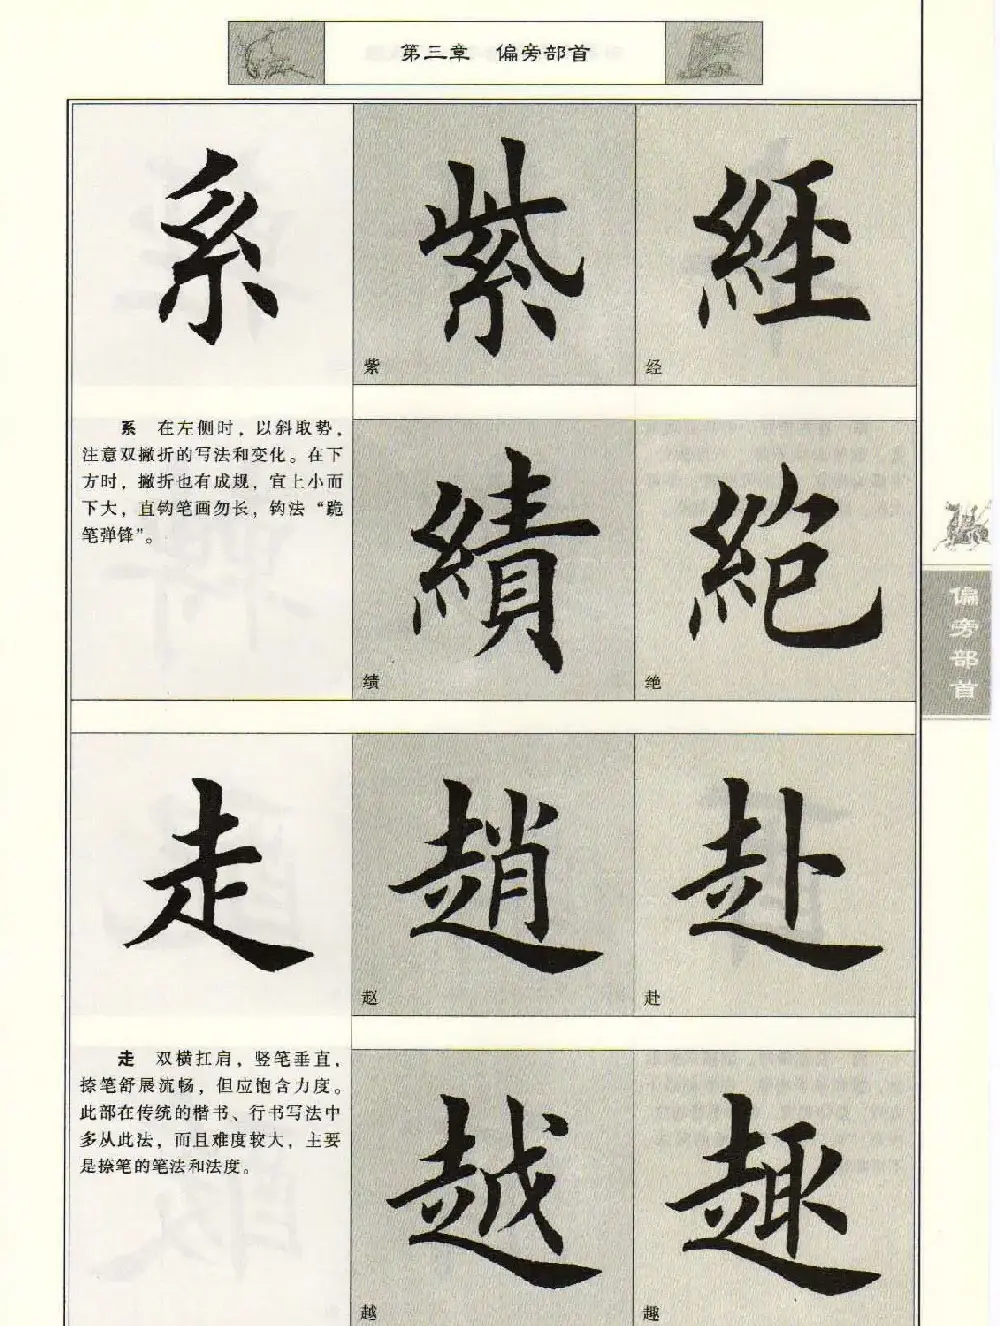 第三章 偏旁部首
系 紫 經
紫 经
系 在左侧时，以斜取势，
注意双撇折的写法和变化。在下
方时，撇折也有成规，宜上小而
下大，直钩笔画勿长，钩法“跪
笔弹锋”。
績 絶
绩 绝
偏旁部首
走 趙 赴
赵 赴
走 双横扛肩，竖笔垂直，
捺笔舒展流畅，但应饱含力度。
此部在传统的楷书、行书写法中
多从此法，而且难度较大，主要
是捺笔的笔法和法度。
越 趣
越 趣